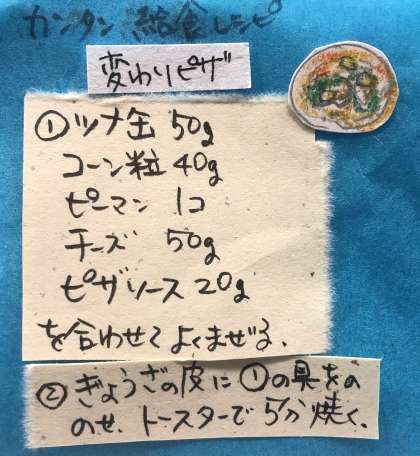 カンタン 給食レシピ
変わりピザ
①ツナ缶 50g
コーン粒 40g
ピーマン 1コ
チーズ 50g
ピザソース 20g
を合わせてよくまぜる。
②ぎょうざの皮に①の具をの
のせ、トースターで5分焼く。